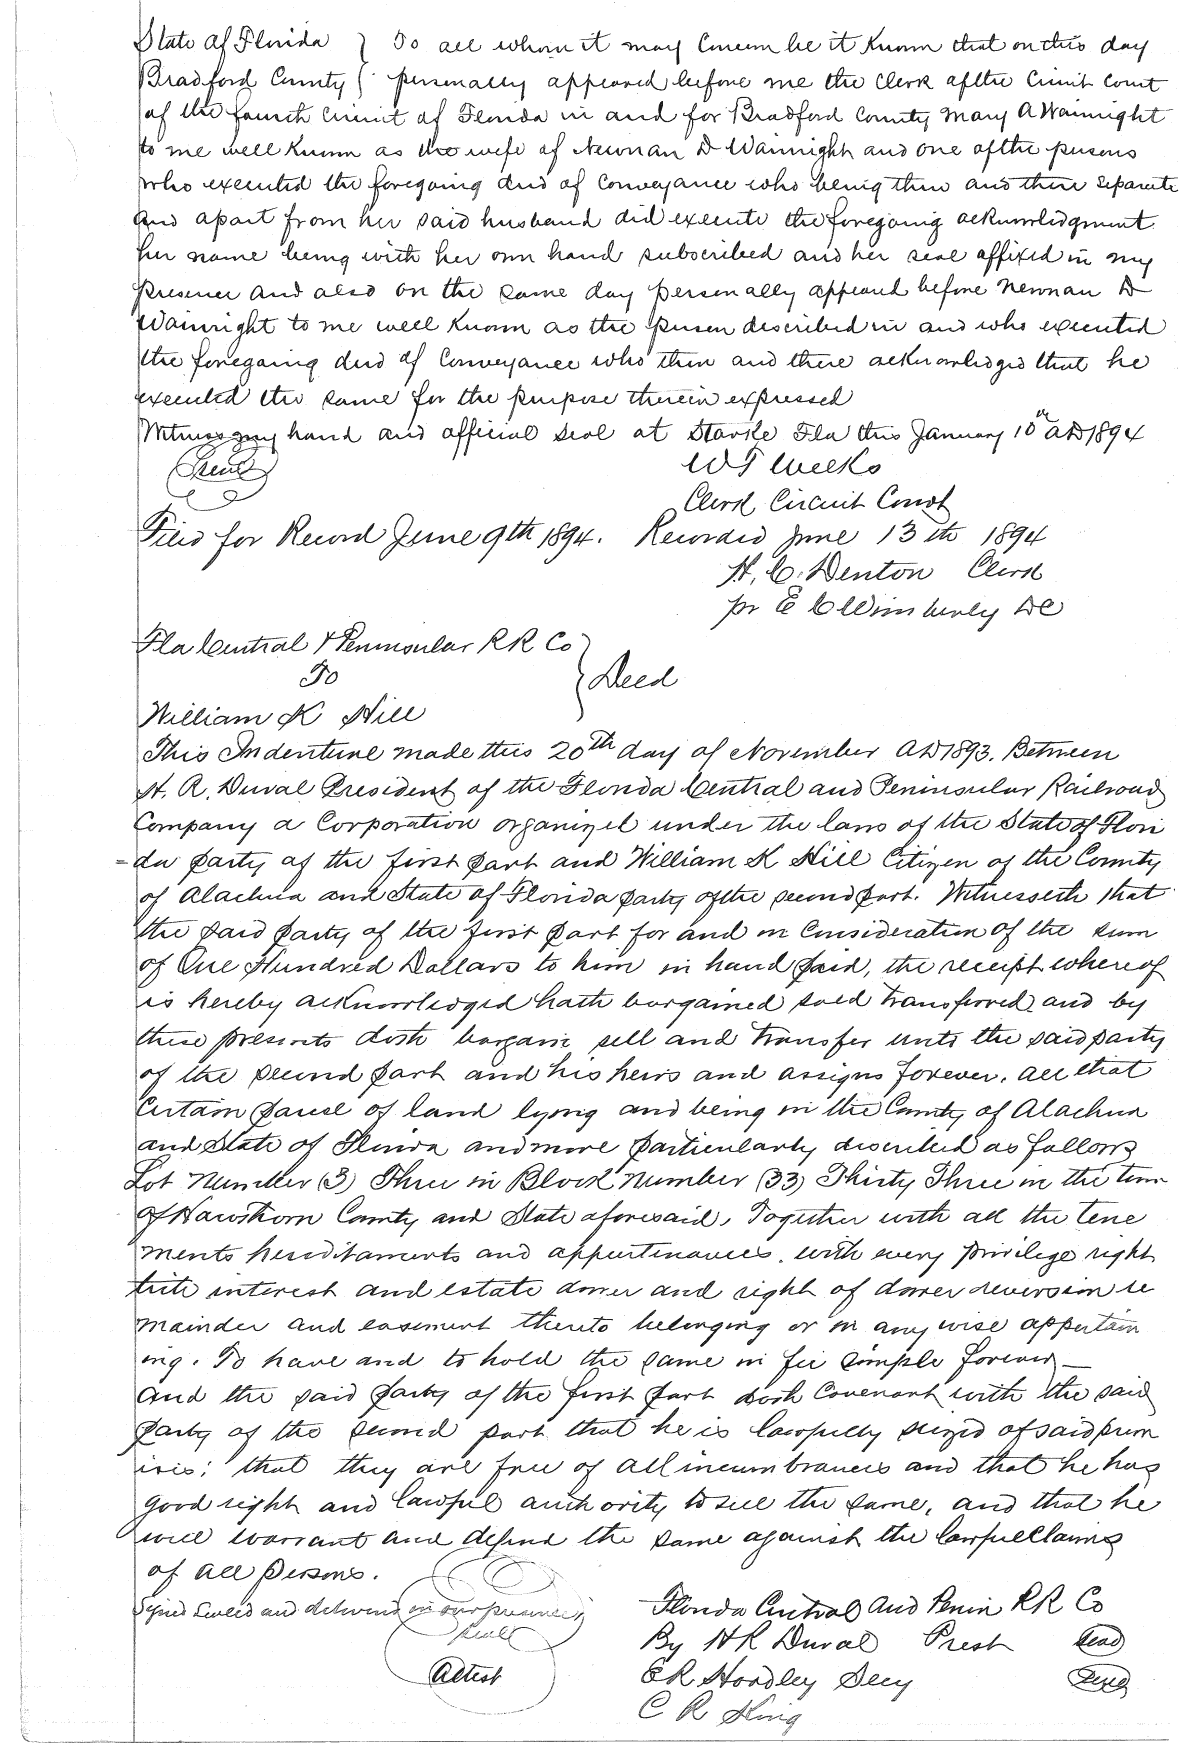 State of Florida } To all whom it may Concern be it Known that on this day
Bradford County { personally appeared before me the Clerk of the Circuit Court
of the fourth Circuit of Florida in and for Bradford County Mary A Wainright
to me well Known as the wife of Newnan D Wainright and one of the persons
who executed the foregoing deed of Conveyance who being then and there separate
and apart from her said husband did execute the foregoing acknowledgment
her name being with her own hand subscribed and her seal affixed in my
presence and also on the same day personally appeared before Newnan D
Wainright to me well Known as the person described in and who executed
the foregoing deed of Conveyance who then and there acknowledged that he
executed the same for the purpose therein expressed
Witness my hand and official seal at Starke Fla this January 10th AD 1894
(Seal) W T Weeks
Clerk Circuit Court
Filed for Record June 9th 1894. Recorded June 13th 1894
H. C. Denton Clerk
pr E C Wimberly DC
Fla Central & Peninsular RR Co
To } Deed
William K Hill
This Indenture made this 20th day of November AD 1893. Between
H. R. Duval President of the Florida Central and Peninsular Railroad
Company a Corporation organized under the laws of the State of Flori
-da party of the first part and William K Hill Citizen of the County
of Alachua and State of Florida party of the second part. Witnesseth that
the said party of the first part for and in Consideration of the sum
of One Hundred Dollars to him in hand paid, the receipt whereof
is hereby acknowledged hath bargained sold transferred and by
these presents doth bargain sell and transfer unto the said party
of the second part and his heirs and assigns forever. all that
Certain parcel of land lying and being in the County of Alachua
and State of Florida and more particularly described as follows
Lot Number (3) Three in Block Number (33) Thirty Three in the town
of Hawthorn County and State aforesaid, Together with all the tene
ments hereditaments and appurtenances, with every privilege right
title interest and estate dower and right of dower reversion re
mainder and easement thereto belonging or in any wise appertain
ing. To have and to hold the same in fee simple forever—
And the said party of the first part doth Covenant with the said
party of the second part that he is lawfully seized of said prem
ises; that they are free of all incumbrances and that he has
good right and lawful authority to sell the same, and that he
will warrant and defend the same against the lawful Claims
of all persons.
Signed Sealed and delivered in our presence Florida Central and Penin RR Co
Seal By H R Duval Prest Seal
Attest E R Hoadley Secy Seal
C R King